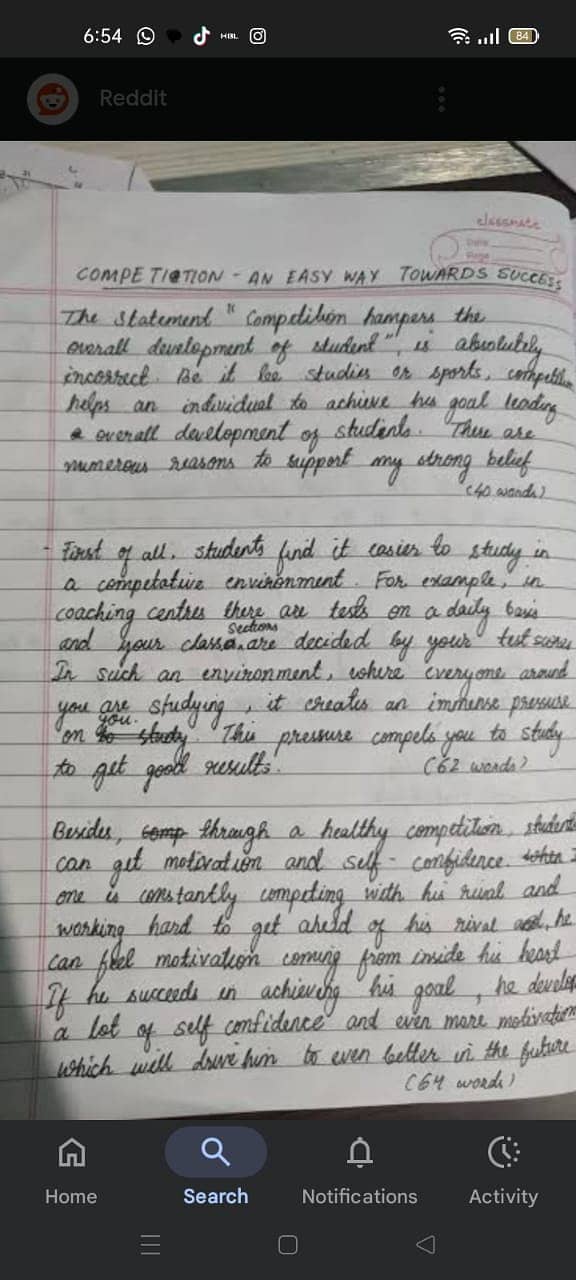 6:54 HBL 84
Reddit
classmate
Date
Page
COMPETITION - AN EASY WAY TOWARDS SUCCESS
The statement "Competition hampers the
overall development of student", is absolutely
incorrect. Be it be studies or sports, competition
helps an individual to achieve his goal leading
overall development of students. There are
numerous reasons to support my strong belief
(40 words)
- First of all, students find it easier to study in
a competative environment. For example, in
coaching centres there are tests on a daily basis
sections
and your class are decided by your test scores
In such an environment, where everyone around
you are studying, it creates an immense pressure
you.
on to study. This pressure compels you to study
to get good results. (62 words)
Besides, comp through a healthy competition, students
can get motivation and self-confidence. When
one is constantly competing with his rival and
working hard to get ahead of his rival and, he
can feel motivation coming from inside his heart
If he succeeds in achieveing his goal, he develop
a lot of self confidence and even more motivation
which will drive him to even better in the future
(64 words)
Home
Search
Notifications
Activity